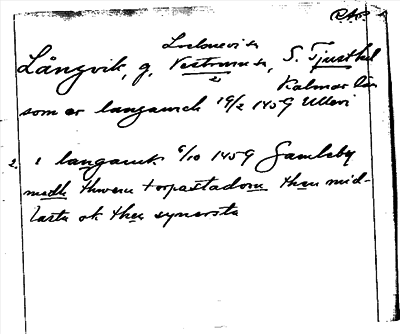 RAP
Långvik, g. Vestrum sn, S. Tjust hd
Kalmar län
som er langauich 19/2 1459 Ullevi
2. i langauik 5/10 1459 Gamleby
medh thwem torpastadom them mid-
lasta ok them synersta